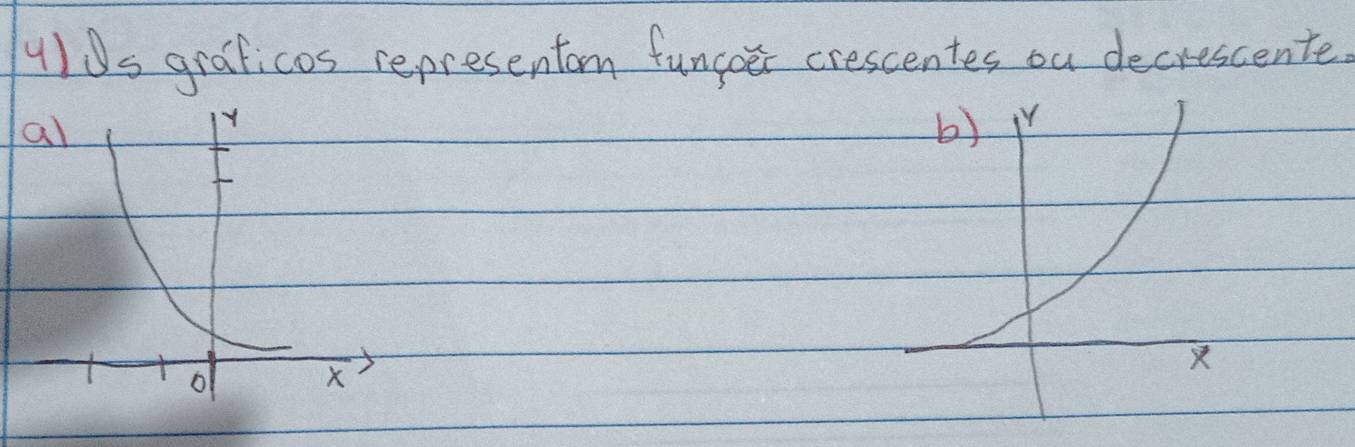 4) Os gráficos representam funções crescentes ou decrescente.
a) Y
b) Y
0 x
x